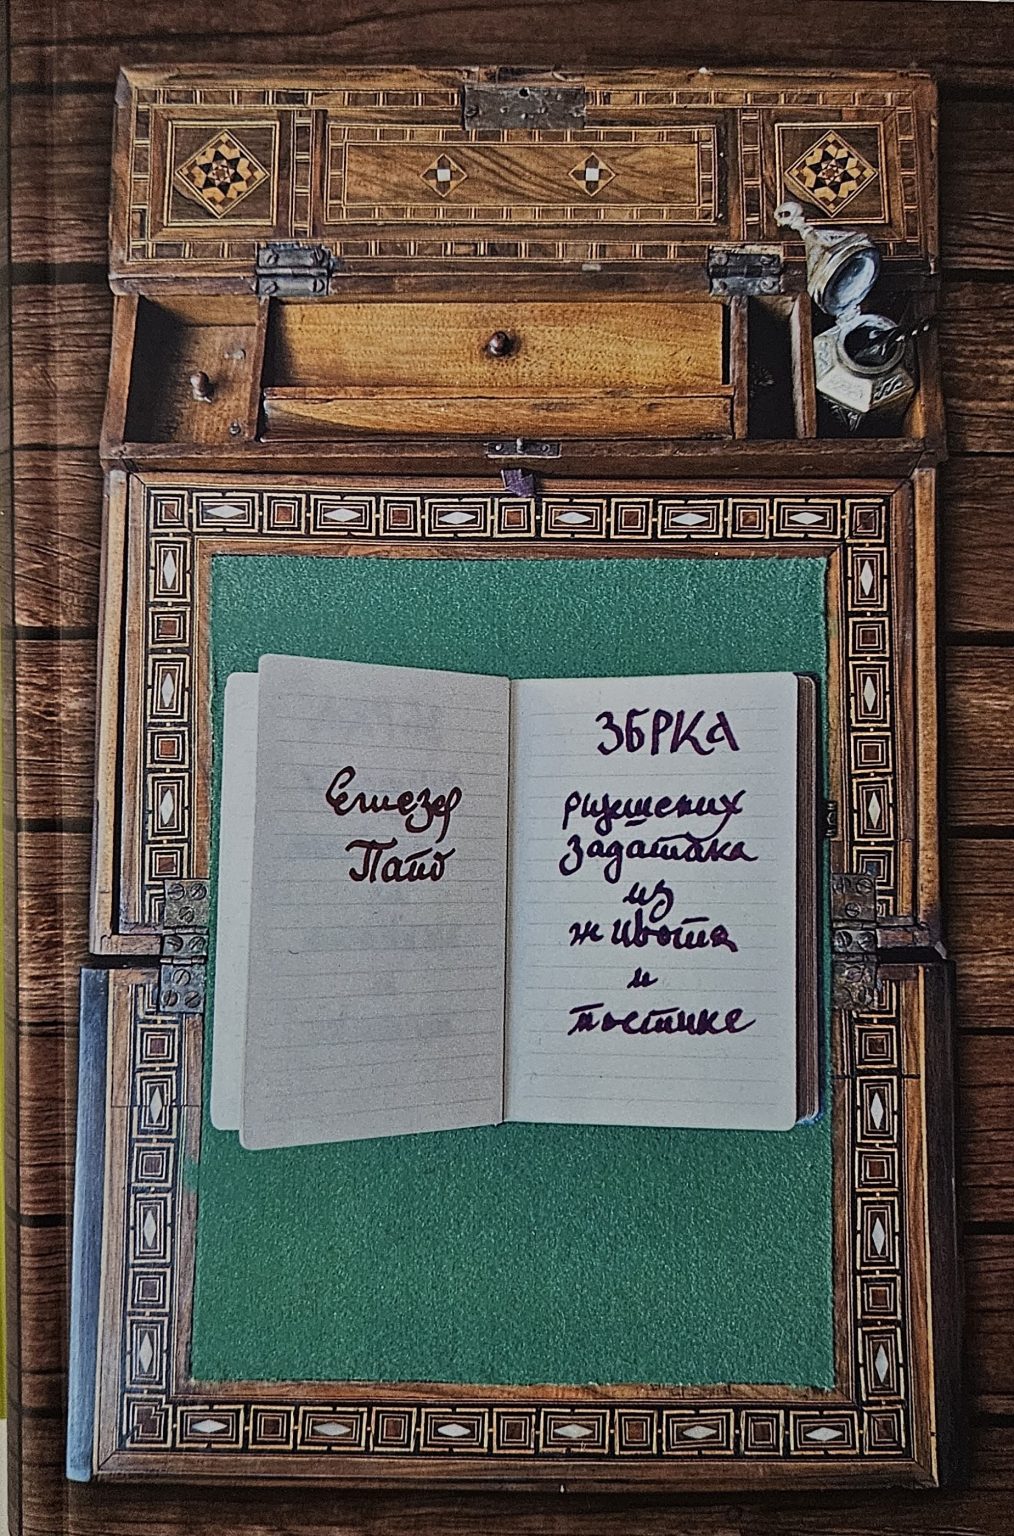 Елиезер
Папо
ЗБРКА
ријешених
задатака
из
живота
и
поетике